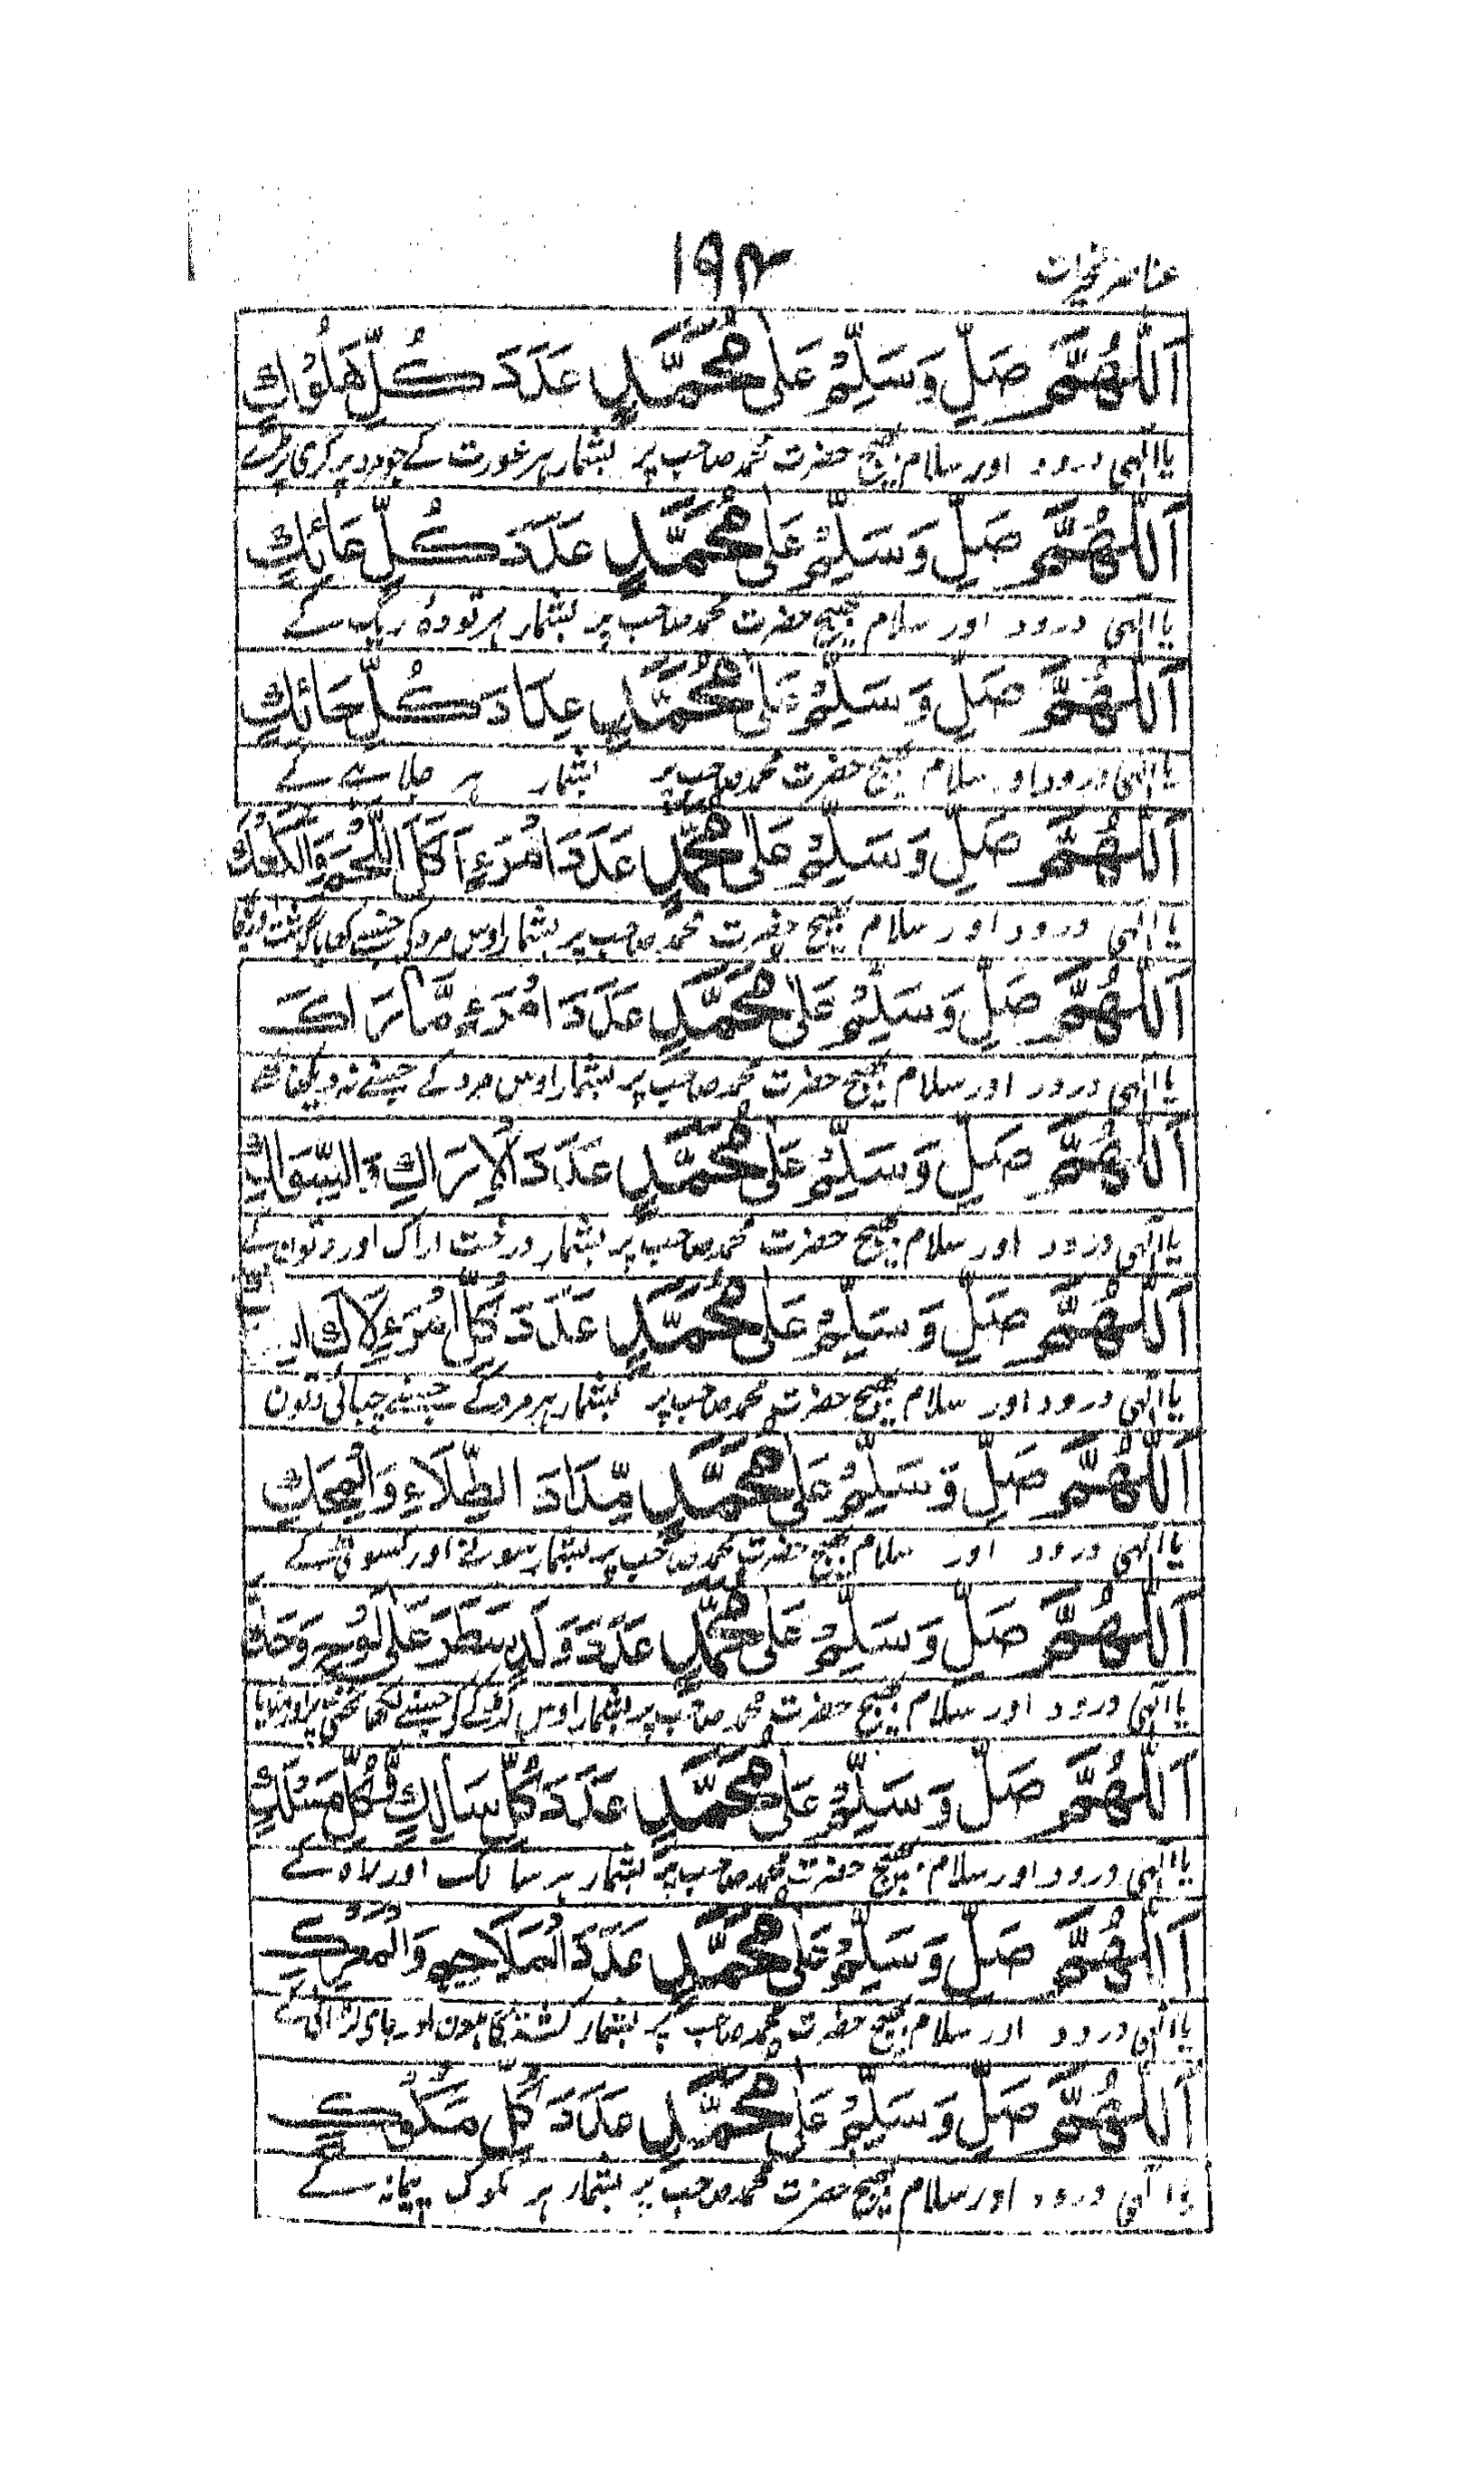 ۱۹۴
اَللّٰهُمَّ صَلِّ وَسَلِّمْ عَلٰى مُحَمَّدٍ عَدَدَ كُلِّ هَلُوْكٍ
یا الٰہی درود اور سلام بھیج حضرت محمد صاحب پر بشمار ہر عورت کے جو مرد پر گری پڑے
اَللّٰهُمَّ صَلِّ وَسَلِّمْ عَلٰى مُحَمَّدٍ عَدَدَ كُلِّ عَانِكٍ
یا الٰہی درود اور سلام بھیج حضرت محمد صاحب پر بشمار ہر تودہ ریگ کے
اَللّٰهُمَّ صَلِّ وَسَلِّمْ عَلٰى مُحَمَّدٍ عِدَادَ كُلِّ حَائِكٍ
یا الٰہی درود اور سلام بھیج حضرت محمد صاحب پر بشمار ہر جلاہے کے
اَللّٰهُمَّ صَلِّ وَسَلِّمْ عَلٰى مُحَمَّدٍ عَدَدَ امْرَءٍ اَكَلَ اللَّحْمَ وَالْكَعْكَ
یا الٰہی درود اور سلام بھیج حضرت محمد صاحب پر بشمار اوس مرد کی جسنے کھایا گوشت اور
اَللّٰهُمَّ صَلِّ وَسَلِّمْ عَلٰى مُحَمَّدٍ عَدَدَ امْرَءٍ مَّا رَاكَ
یا الٰہی درود اور سلام بھیج حضرت محمد صاحب پر بشمار اوس مرد کے جسنے نہ دیکھا
اَللّٰهُمَّ صَلِّ وَسَلِّمْ عَلٰى مُحَمَّدٍ عَدَدَ الْاَرَاكِ وَالسِّوَاكِ
یا الٰہی درود اور سلام بھیج حضرت محمد صاحب پر بشمار درخت اراک اور دتون کے
اَللّٰهُمَّ صَلِّ وَسَلِّمْ عَلٰى مُحَمَّدٍ عَدَدَ كُلِّ امْرَءٍ لَاكَ
یا الٰہی درود اور سلام بھیج حضرت محمد صاحب پر بشمار ہر مرد کے جسنے چبائی دتون
اَللّٰهُمَّ صَلِّ وَسَلِّمْ عَلٰى مُحَمَّدٍ مِّدَادَ الطِّلَاءِ وَالْمِحَكِّ
یا الٰہی درود اور سلام بھیج حضرت محمد صاحب پر بشمار سونے اور کسوٹی کے
اَللّٰهُمَّ صَلِّ وَسَلِّمْ عَلٰى مُحَمَّدٍ عَدَدَ وَلَدٍ سَطَرَ عَلٰى لَوْحٍ وَحَكَّ
یا الٰہی درود اور سلام بھیج حضرت محمد صاحب پر بشمار اوس لڑکے کی جسنے لکھا تختی پر اور مٹایا
اَللّٰهُمَّ صَلِّ وَسَلِّمْ عَلٰى مُحَمَّدٍ عَدَدَ كُلِّ سَالِكٍ وَّكُلِّ مَسْلَكٍ
یا الٰہی درود اور سلام بھیج حضرت محمد صاحب پر بشمار ہر سالک اور راہ کے
اَللّٰهُمَّ صَلِّ وَسَلِّمْ عَلٰى مُحَمَّدٍ عَدَدَ الْمَلَاحِمِ وَالْمَعْرَكِ
یا الٰہی درود اور سلام بھیج حضرت محمد صاحب پر بشمار اور جای لڑائی کے
اَللّٰهُمَّ صَلِّ وَسَلِّمْ عَلٰى مُحَمَّدٍ عَدَدَ كُلِّ مَكُّوْكٍ
یا الٰہی درود اور سلام بھیج حضرت محمد صاحب پر بشمار ہر مکوک پیمانہ کے